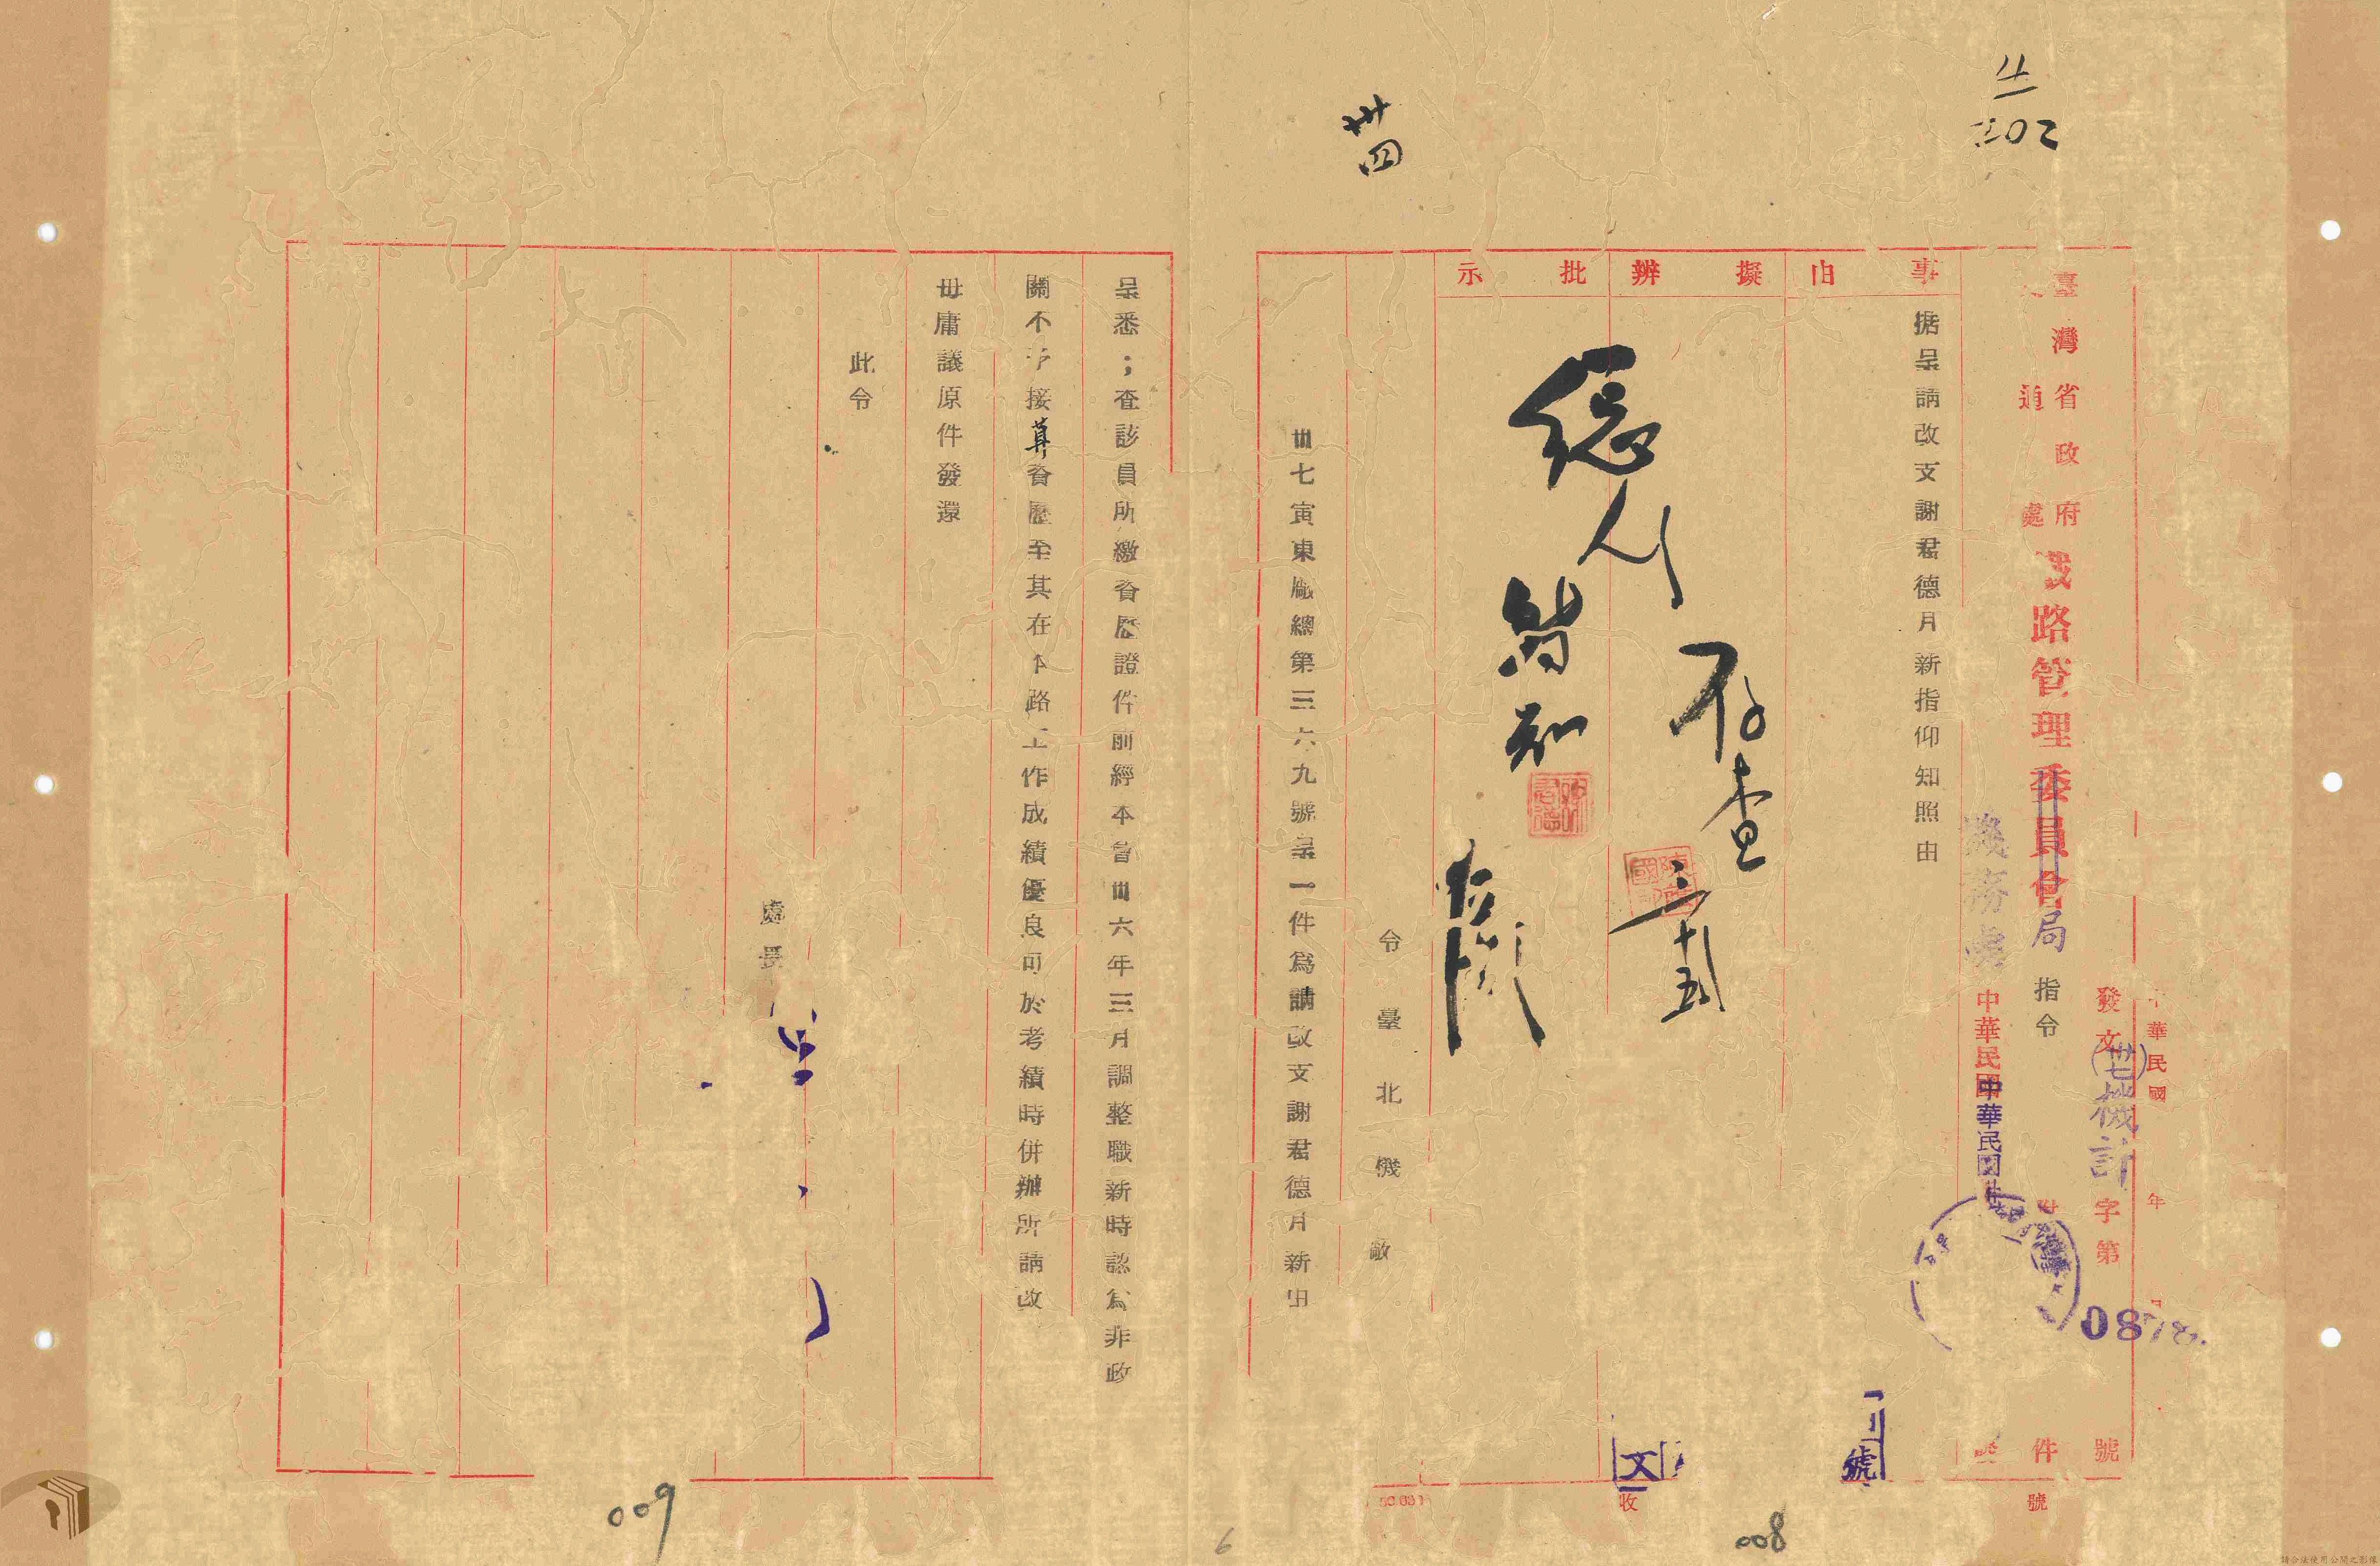 卄
302
卄四
華民國 年
發文(卅七)機計字第 號
087
臺灣省政府
通處
鐵路管理委員會局 指令
件
機務處
中華民國
中華民國
事由
据呈請改支謝君德月新指仰知照由
擬辦
存查
批示
總人
簡知
令臺北機廠
卅七寅東廠總第三六九號呈一件爲請改支謝君德月新由
呈悉；查該員所繳資歷證件前經本會卅六年三月調整職新時認爲非政
關不予接算資歷至其在本路工作成績優良可於考績時併辦所請改
毋庸議原件發還
此令
處長
收
文
號
號
008
009
6
請合法使用公開之影像